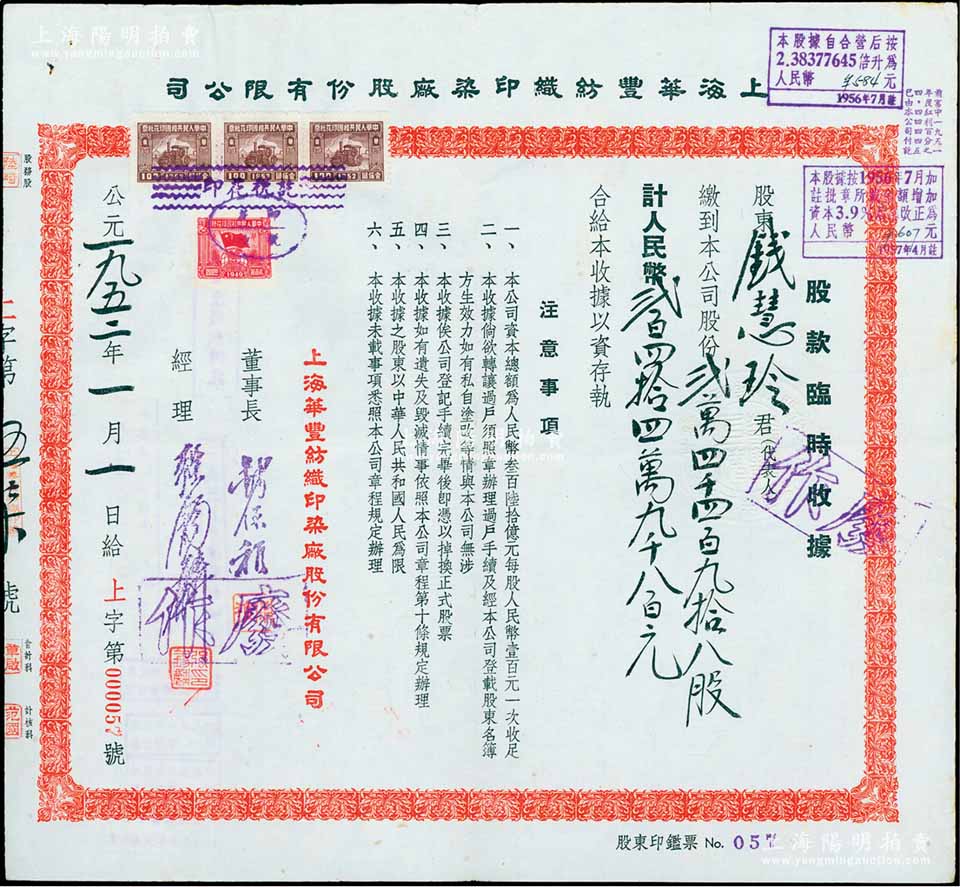 上海陽明拍賣
上海華豐紡織印染廠股份有限公司
本股據自合营后按
2.38377645倍升爲
人民幣 ¥584元
1956年7月註
本股據按1956年7月加
資本3.9%
人民幣 607元
1957年4月註
股款臨時收據
股東錢慧玲君(代表人
繳到本公司股份貳萬四千四百九拾八股
計人民幣貳百四拾四萬九千八百元
合給本收據以資存執
注意事項
一、本公司資本總額爲人民幣叁百陸拾億元每股人民幣壹百元一次收足
二、本收據倘欲轉讓過戶須照章辦理過戶手續及經本公司登載股東名簿
方生效力如有私自塗改等情與本公司無涉
三、本收據俟公司登記手續完畢後即憑以掉換正式股票
四、本收據如有遺失及毀滅情事依照本公司章程第十條規定辦理
五、本收據之股東以中華人民共和國人民爲限
六、本收據未載事項悉照本公司章程規定辦理
上海華豐紡織印染廠股份有限公司
董事長
經理
作廢
公元一九五二年一月一日給
上字第000057號
作廢
100 1952
100 1952
100 1952
1949
股務股
會計科
計核科
字第
號
股東印鑑票 No. 057
上海陽明拍賣
www.yangmingauction.com